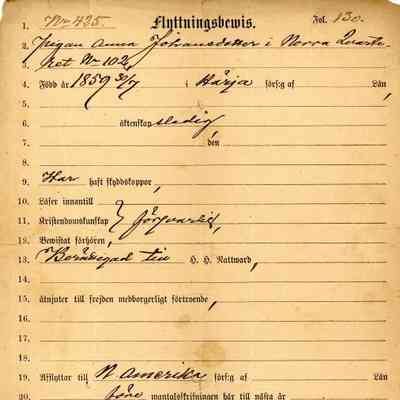 1. No 425. Flyttningsbewis. Fol. 130.
2. Pigan Anna Johansdotter i Norra Quarte-
3. ret No 102,
4. Född år 1859 30/7 i Härja förs:g af Län,
5.
6. äktenskap ledig
7. den
8.
9. Har haft skyddskoppor,
10. Läser innantill
11. Kristendomskunskap } försvarlig,
12. Bewistat förhören,
13. Berättigad till H. H. Nattward,
14.
15. åtnjuter till frejden medborgerligt förtroende,
16.
17.
18.
19. Afflyttar till N. Amerika förs:g af Län
20. före mantalsskrifningen här till nästa år